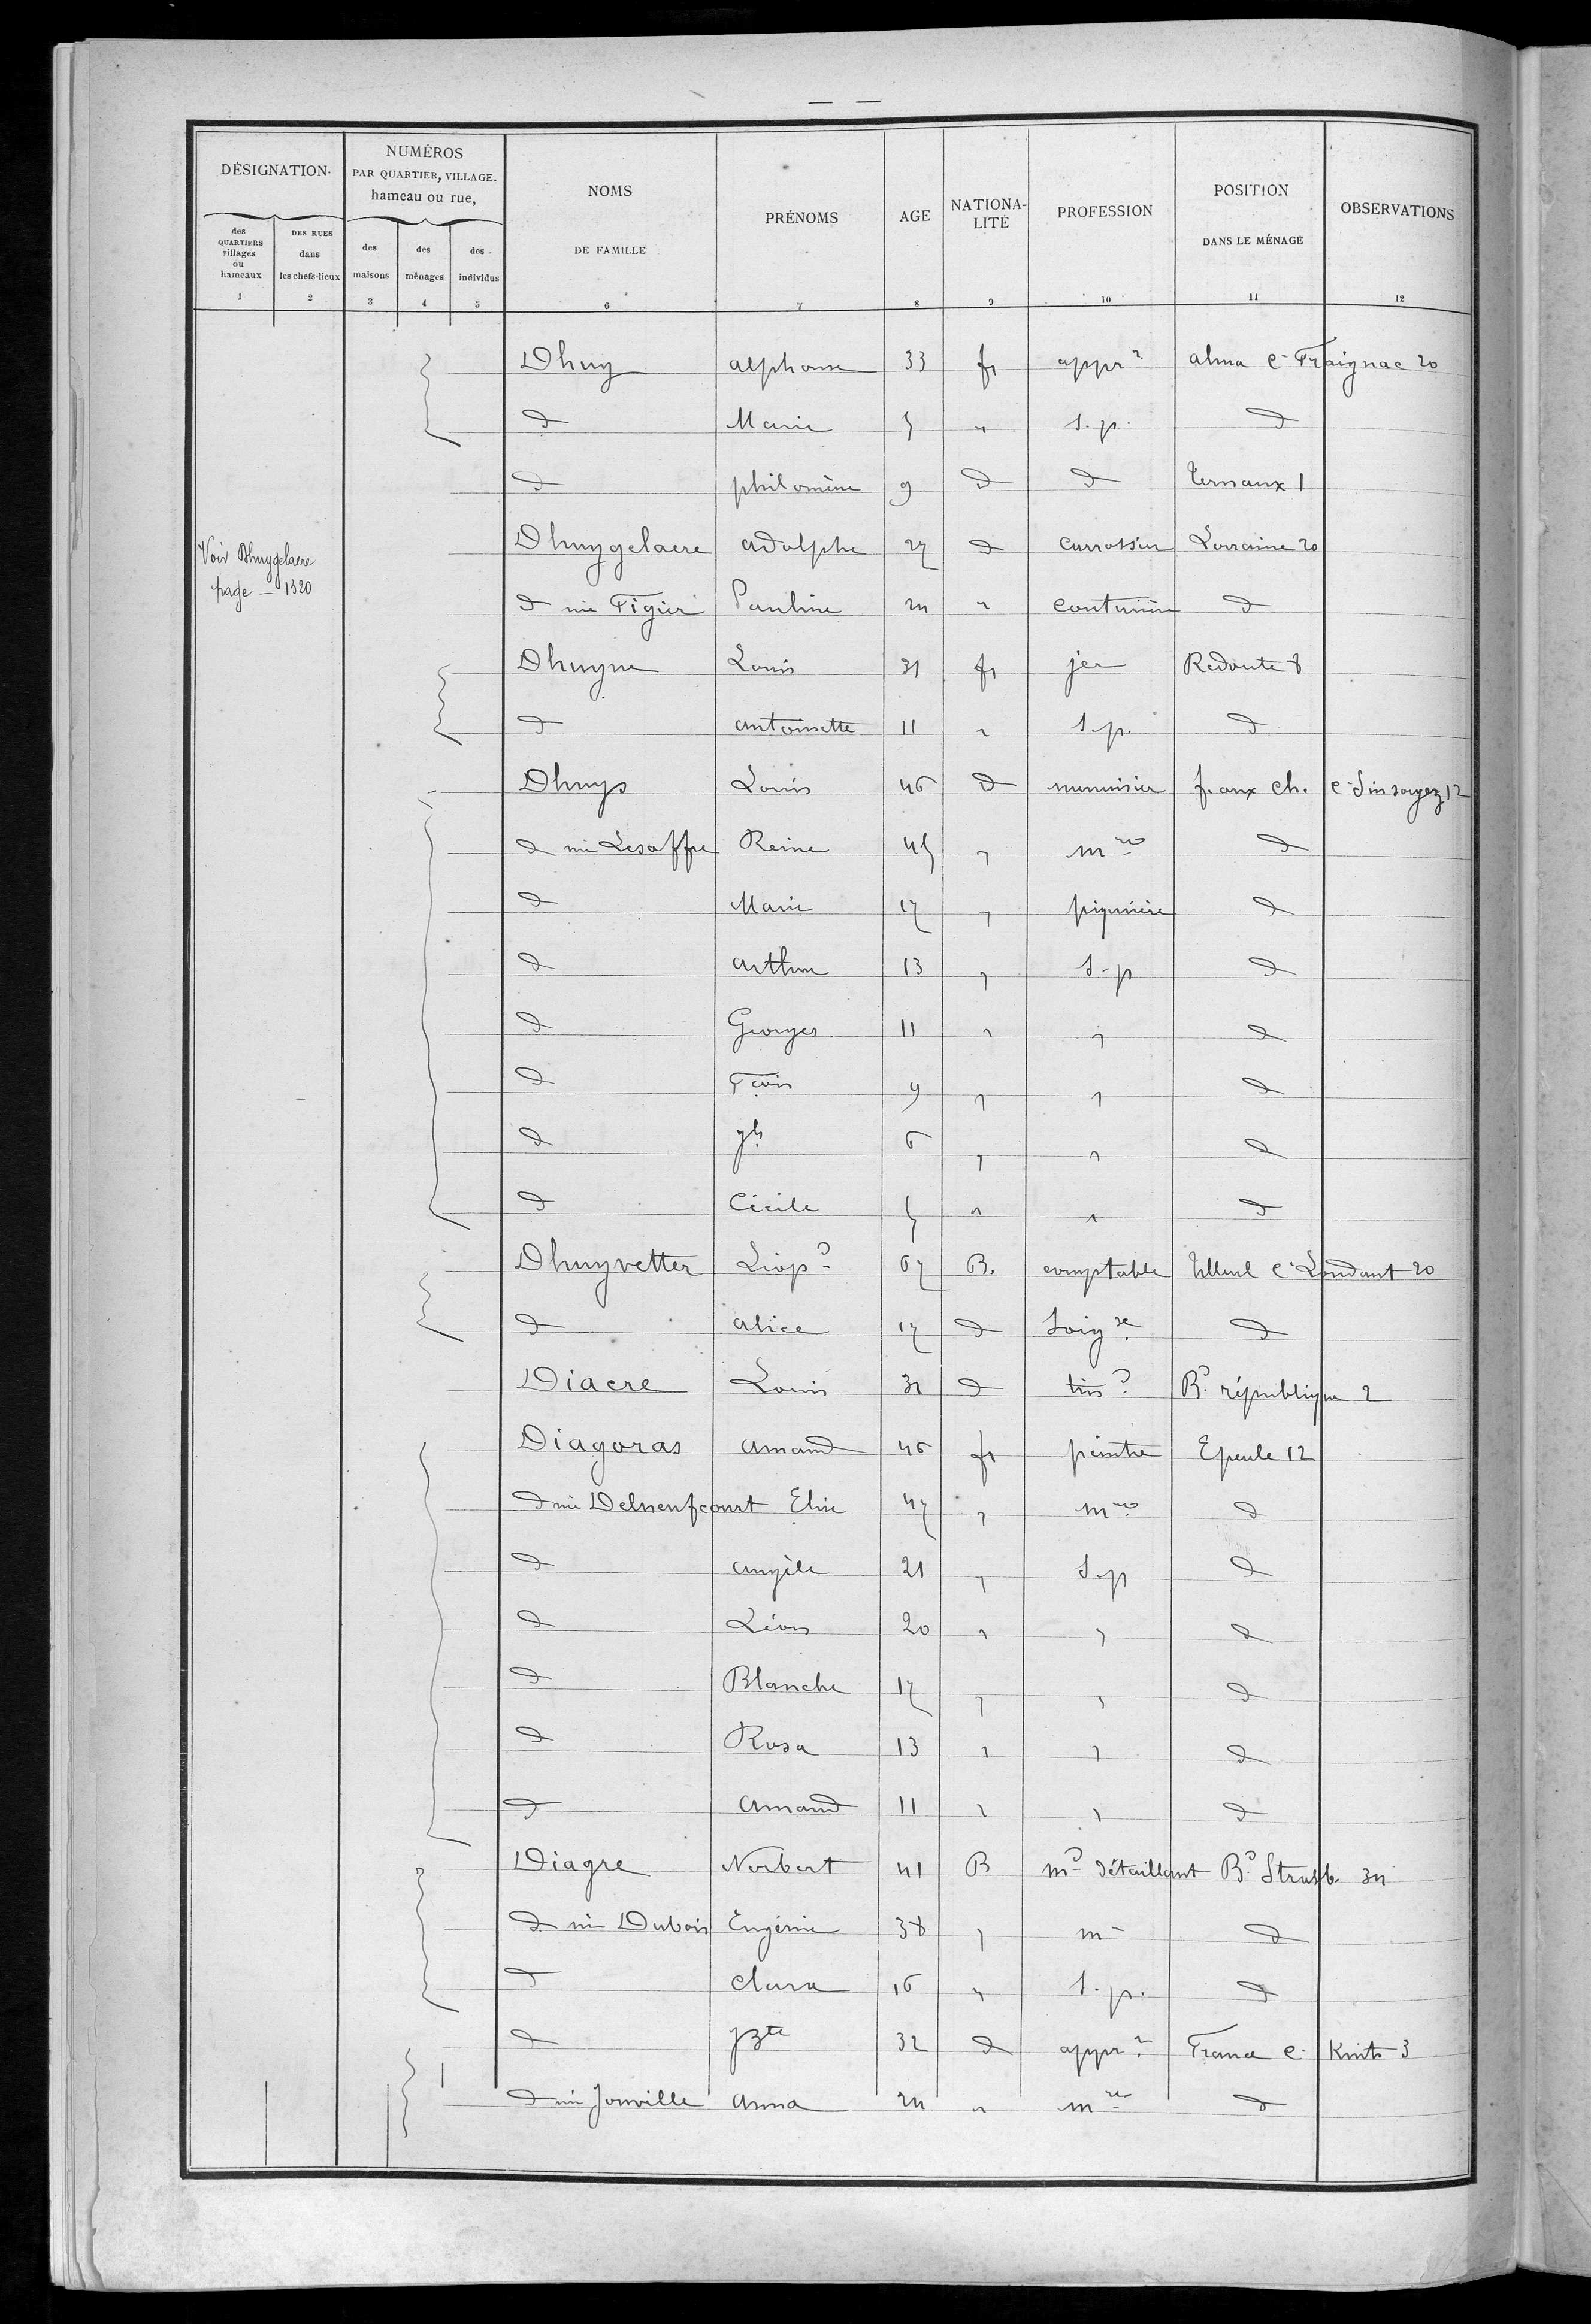 — —
DÉSIGNATION.
NUMÉROS
PAR QUARTIER, VILLAGE.
hameau ou rue,
NOMS
DE FAMILLE
PRÉNOMS
AGE
NATIONA-
LITÉ
PROFESSION
POSITION
DANS LE MÉNAGE
OBSERVATIONS
des
QUARTIERS
villages
ou
hameaux
DES RUES
dans
les chefs-lieux
des
maisons
des
ménages
des
individus
1 2 3 4 5 6 7 8 9 10 11 12
Dhuy alphonse 33 fr appr r alma c- Fraignac 20
d Marie 5 " s. p. d
d philomène 9 d d Ternaux 1
Voir Dhuygelaere
page — 1320
Dhuygelaere adolphe 27 d carrossier Lorraine 20
d née Figier Pauline 24 " couturière d
Dhuyne Louis 31 fr jer Redoute 8
d antoinette 11 " s. p. d
Dhuys Louis 46 d menuisier f. aux ch. c-
d née Lesaffre Reine 45 " m re d
d Marie 17 " piqurière d
d arthur 13 " s-p d
d Georges 11 " " d
d Fcois 9 " " d
d 6 " " d
d Cécile 5 " " d
Dhuyvetter Léop d 67 B. comptable Tilleul c- 20
d alice 17 d soig se d
Diacre Louis 31 d tiss d B d république 2
Diagoras amand 46 fr peintre Epeule 12
d née Delneufcourt Elise 47 " m re d
d angèle 21 " s-p d
d Léon 20 " " d
d Blanche 17 " " d
d Rosa 13 " " d
d amand 11 " " d
Diagre Norbert 41 B m d détaillant B d Strasb. 34
d née Dubois Eugénie 38 " m- d
d clara 16 " s. p. d
d JBte 32 d appr r France c- 3
d née Jonville anna 24 " m re d